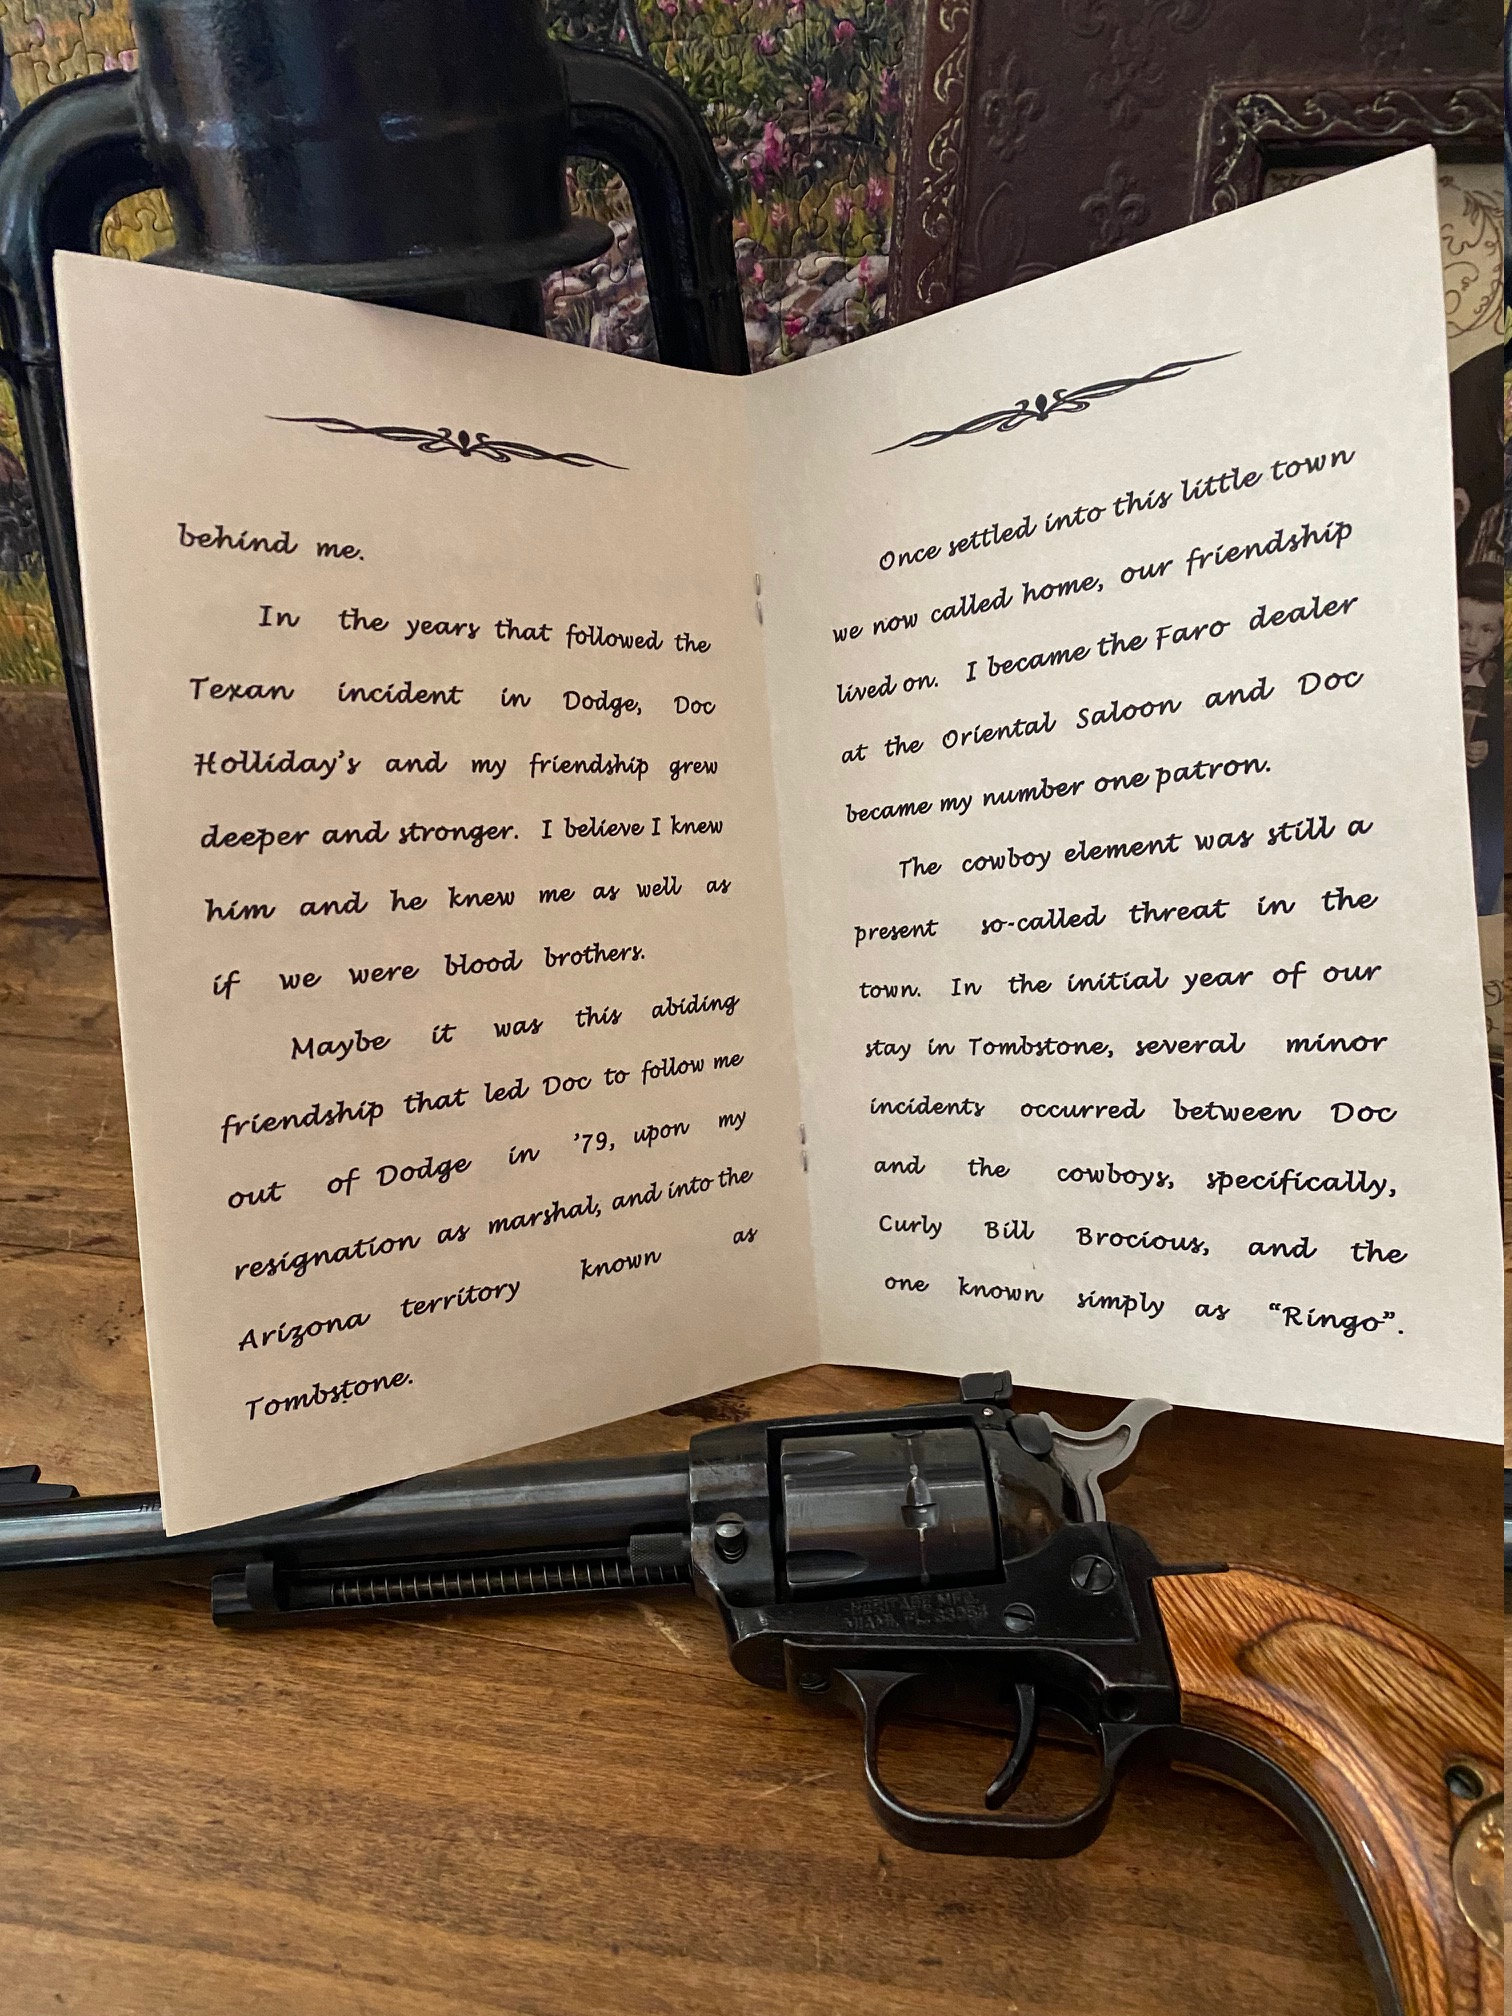 behind me.
In the years that followed the
Texan incident in Dodge, Doc
Holliday's and my friendship grew
deeper and stronger. I believe I knew
him and he knew me as well as
if we were blood brothers.
Maybe it was this abiding
friendship that led Doc to follow me
out of Dodge in '79, upon my
resignation as marshal, and into the
Arizona territory known as
Tombstone.
Once settled into this little town
we now called home, our friendship
lived on. I became the Faro dealer
at the Oriental Saloon and Doc
became my number one patron.
The cowboy element was still a
present so-called threat in the
town. In the initial year of our
stay in Tombstone, several minor
incidents occurred between Doc
and the cowboys, specifically,
Curly Bill Brocious, and the
one known simply as "Ringo".
HERITAGE MFG.
MIAMI, FL.